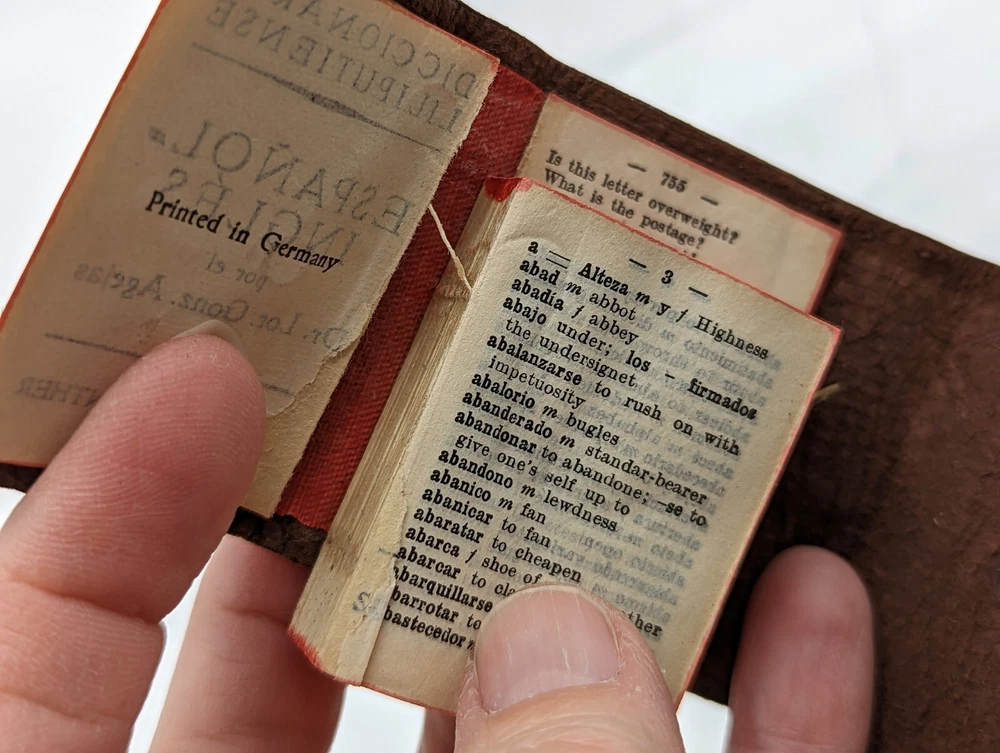 Printed in Germany
— 755 —
Is this letter overweight?
What is the postage?
— 3 —
a = Alteza m y f Highness
abad m abbot
abadía f abbey
abajo under; los - firmados
the undersignet
abalanzarse to rush on with
impetuosity
abalorio m bugles
abanderado m standar-bearer
abandonar to abandone; -se to
give one's self up to
abandono m lewdness
abanico m fan
abanicar to fan
abaratar to cheapen
abarca f shoe of
abarcar to
abarquillarse
barrotar to
bastecedor m
DICCIONAR
LILIPUTIENSE
ESPAÑOL=
INGLÉS
por el
Dr. Lor. Gonz. Agejas